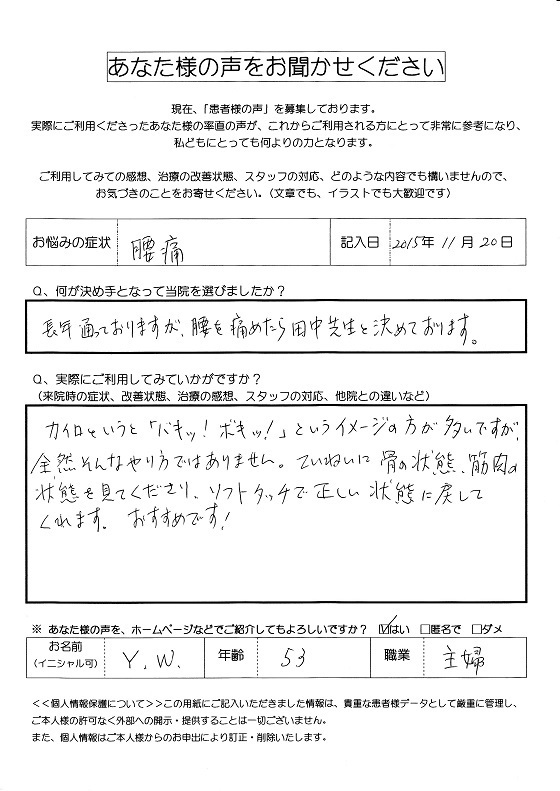 あなた様の声をお聞かせください
現在、「患者様の声」を募集しております。
実際にご利用くださったあなた様の率直の声が、これからご利用される方にとって非常に参考になり、
私どもにとっても何よりの力となります。
ご利用してみての感想、治療の改善状態、スタッフの対応、どのような内容でも構いませんので、
お気づきのことをお寄せください。（文章でも、イラストでも大歓迎です）
お悩みの症状 腰痛 記入日 2015年 11月 20日
Q、何が決め手となって当院を選びましたか？
長年通っておりますが、腰を痛めたら田中先生と決めております。
Q、実際にご利用してみていかがですか？
（来院時の症状、改善状態、治療の感想、スタッフの対応、他院との違いなど）
カイロというと「バキッ！ボキッ！」というイメージの方が多いですが、
全然そんなやり方ではありません。ていねいに骨の状態、筋肉の
状態を見てくださり、ソフトタッチで正しい状態に戻して
くれます。おすすめです！
※ あなた様の声を、ホームページなどでご紹介してもよろしいですか？ ☑はい □匿名で □ダメ
お名前
（イニシャル可） Y.W. 年齢 53 職業 主婦
<<個人情報保護について>>この用紙にご記入いただきました情報は、貴重な患者様データとして厳重に管理し、
ご本人様の許可なく外部への開示・提供することは一切ございません。
また、個人情報はご本人様からのお申出により訂正・削除いたします。